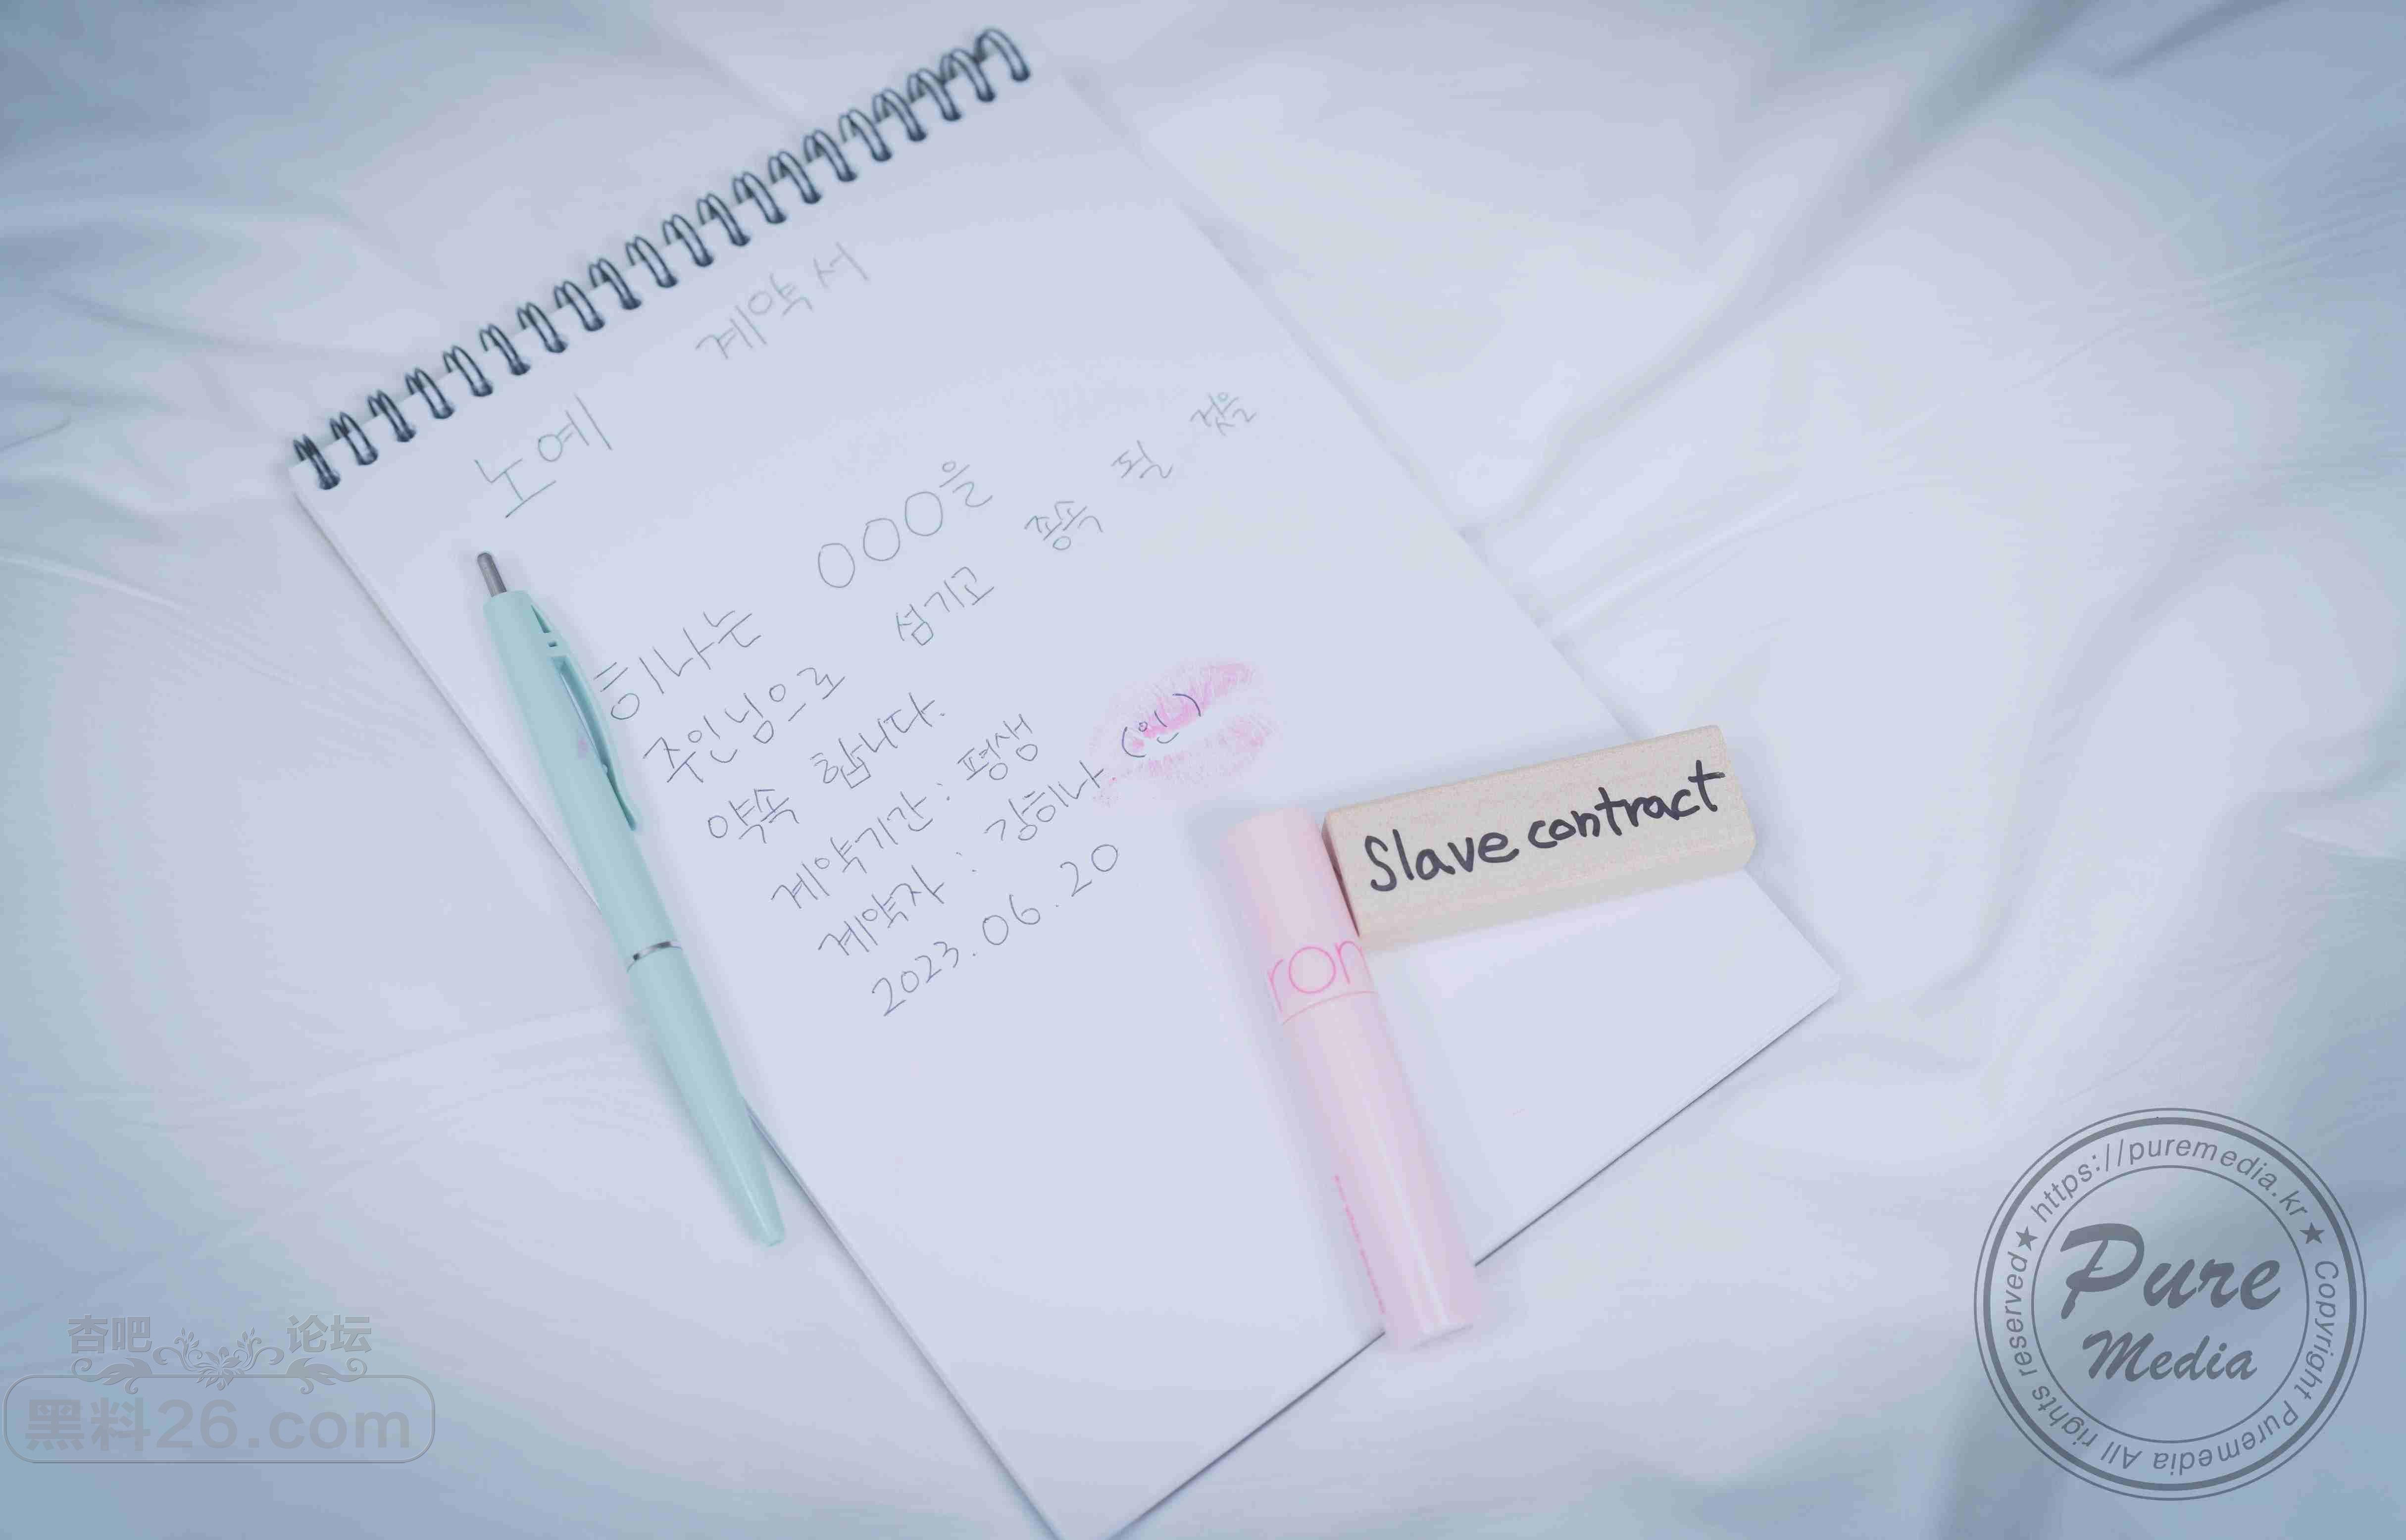 노예 계약서
히나는 OOO을
주인님으로 섬기고 종속 될 것을
약속 합니다.
계약기간 : 평생
계약자 : 강히나 (인)
2023.06.20
Slave contract
ron
杏吧 论坛
黑料26.com
https://puremedia.kr ★ Copyright Puremedia All rights reserved ★
Pure
Media